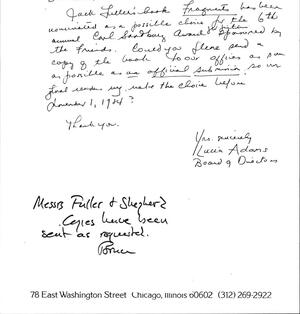 Jack Fuller's book Fragments has been
nominated as a possible choice for the 6th
annual Carl Sandburg Award sponsored by
the Friends. Could you please send a
copy of the book to our offices as soon
as possible as an official submission so our
final readers may make the choice before
November 1, 1984?
Thank you.
Yrs. sincerely
Adams
Board of Directors
Messrs Fuller & Shepherd
Copies have been
sent as requested.
78 East Washington Street Chicago, Illinois 60602 (312) 269-2922